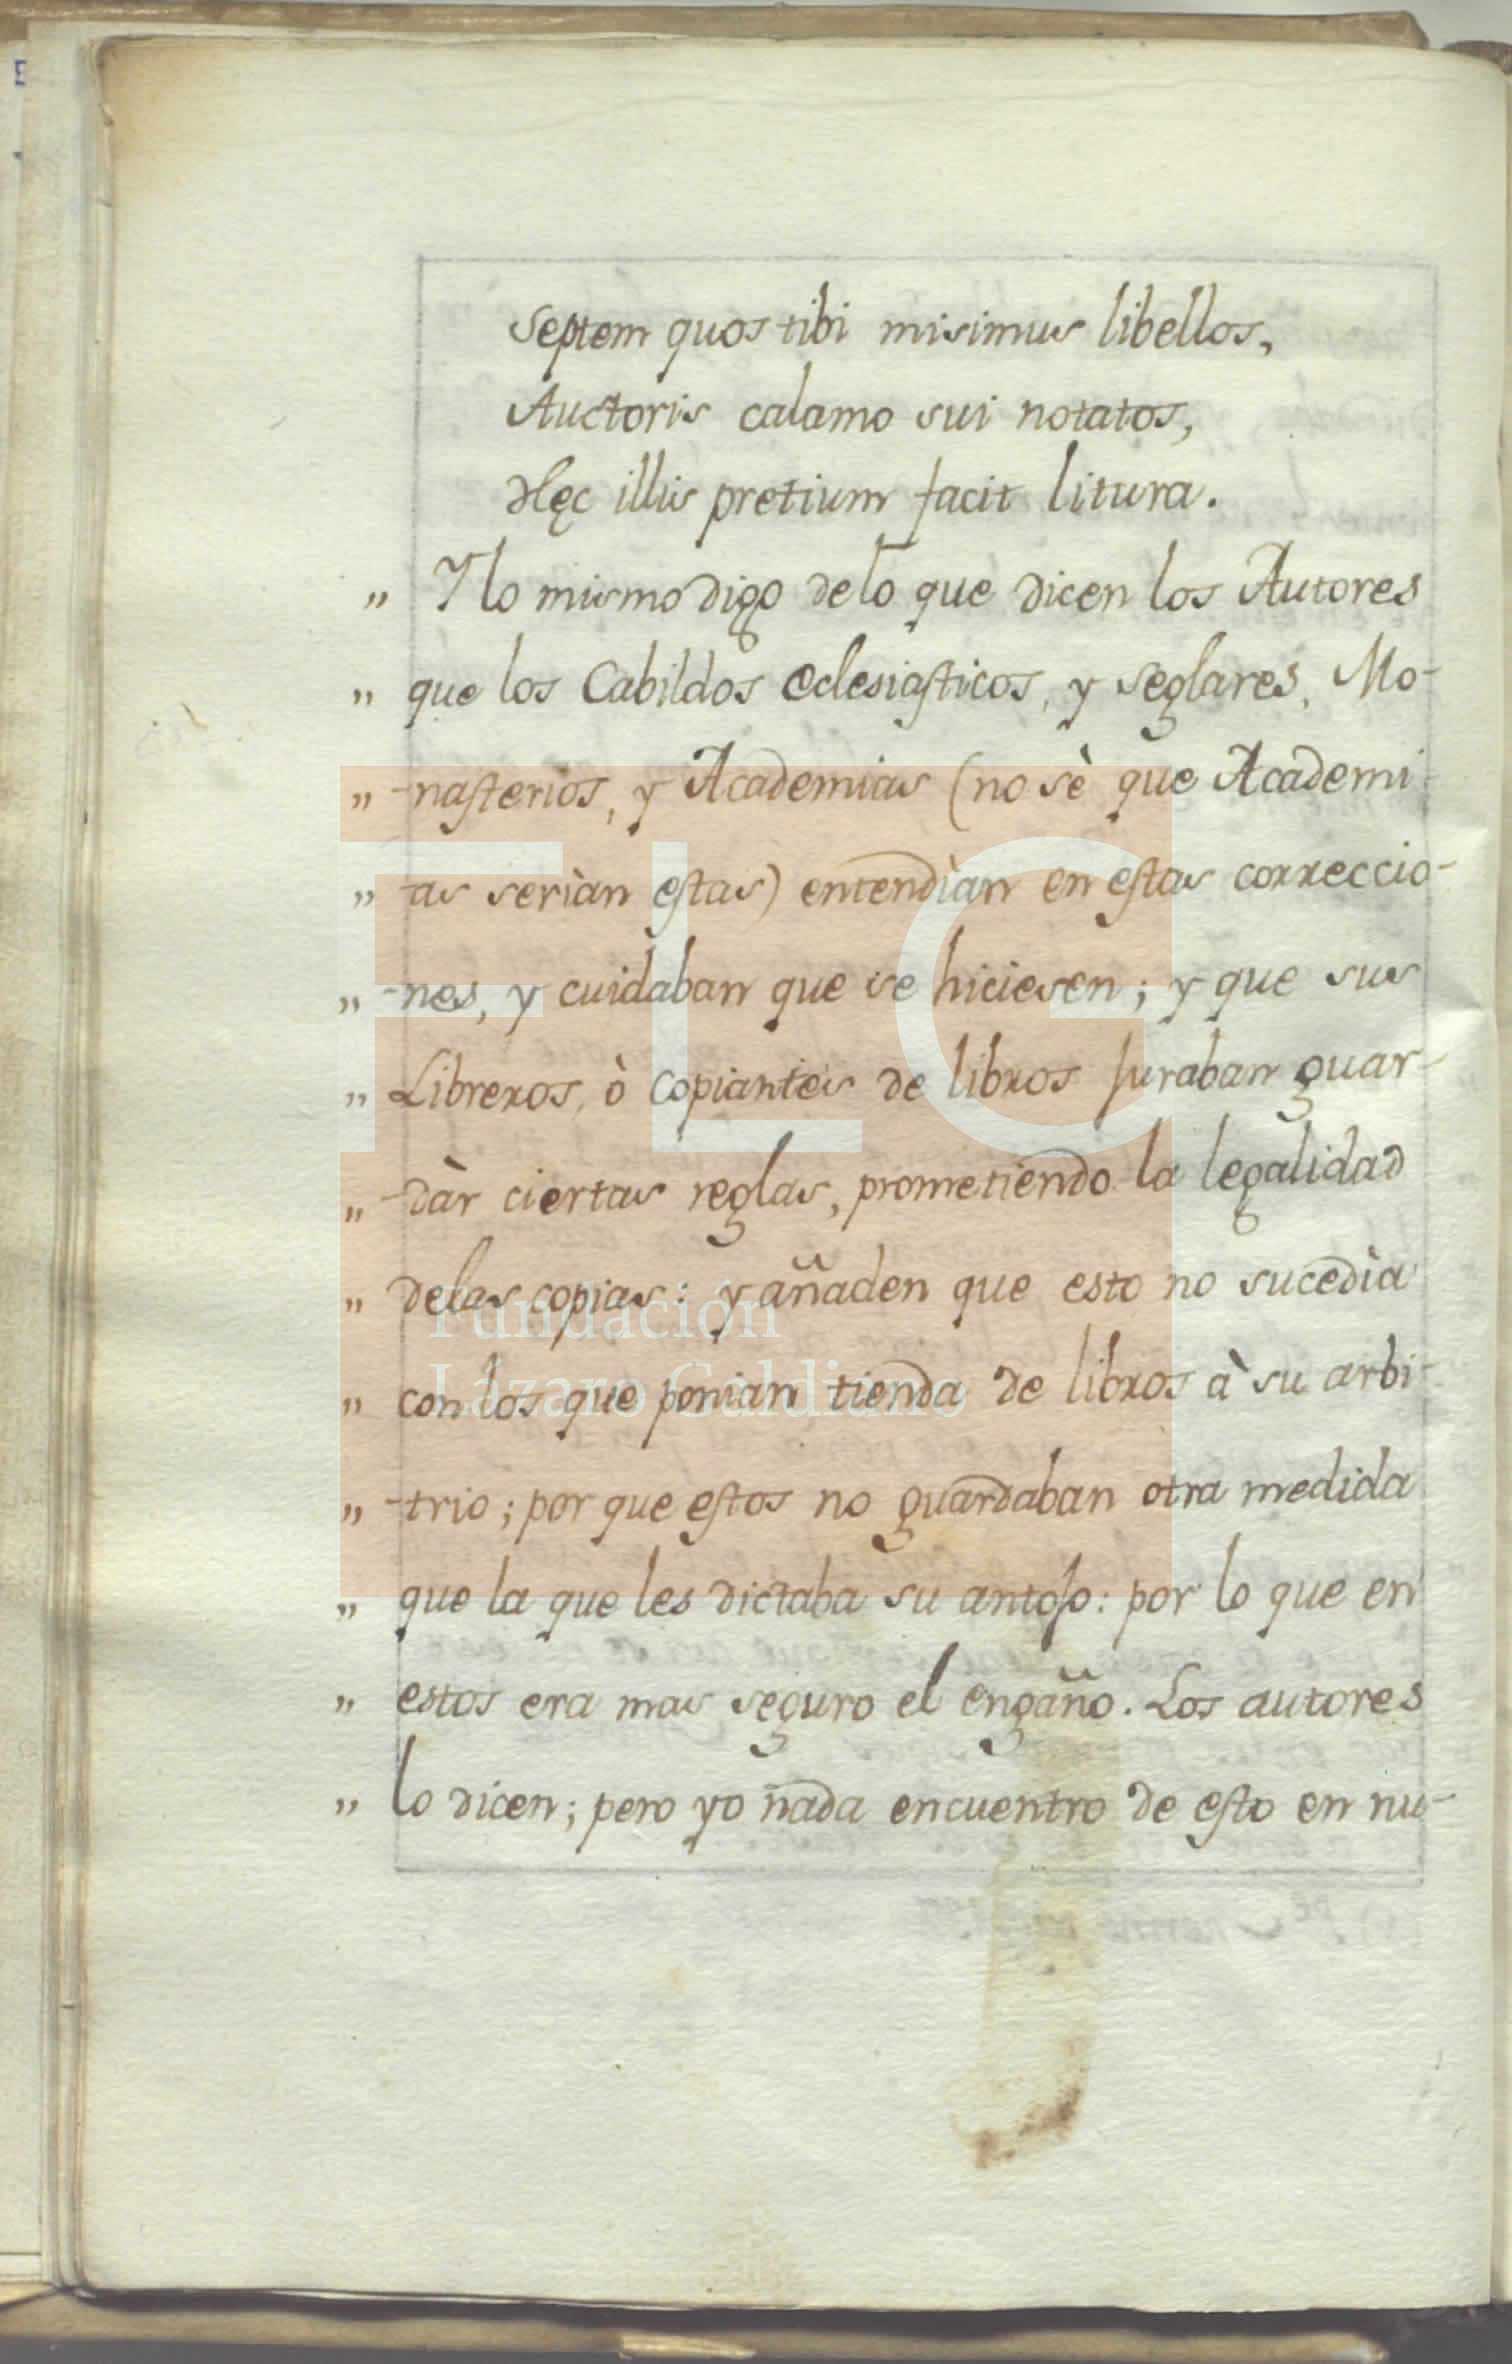 Septem quos tibi misimus libellos,
Auctoris calamo sui notatos,
Hęc illis pretium facit litura.
„ Y lo mismo digo de lo que dicen los Autores
„ que los Cabildos eclesiasticos, y seglares, Mo-
„ -nasterios, y Academias (no sè que Academi-
„ as serìan estas) entendìan en estas correccio-
„ -nes, y cuidaban que se hiciesen; y que sus
„ Libreros, ò copiantes de libros juraban guar-
„ -dàr ciertas reglas, prometiendo la legalidad
„ delas copias: y añaden que esto no sucedìa
„ con los que ponian tienda de libros à su arbi-
„ -trio; por que estos no guardaban otra medida
„ que la que les dictaba su antojo: por lo que en
„ estos era mas seguro el engaño. Los autores
„ lo dicen; pero yo nada encuentro de esto en nu-
FLG
Fundación
Lázaro Galdiano